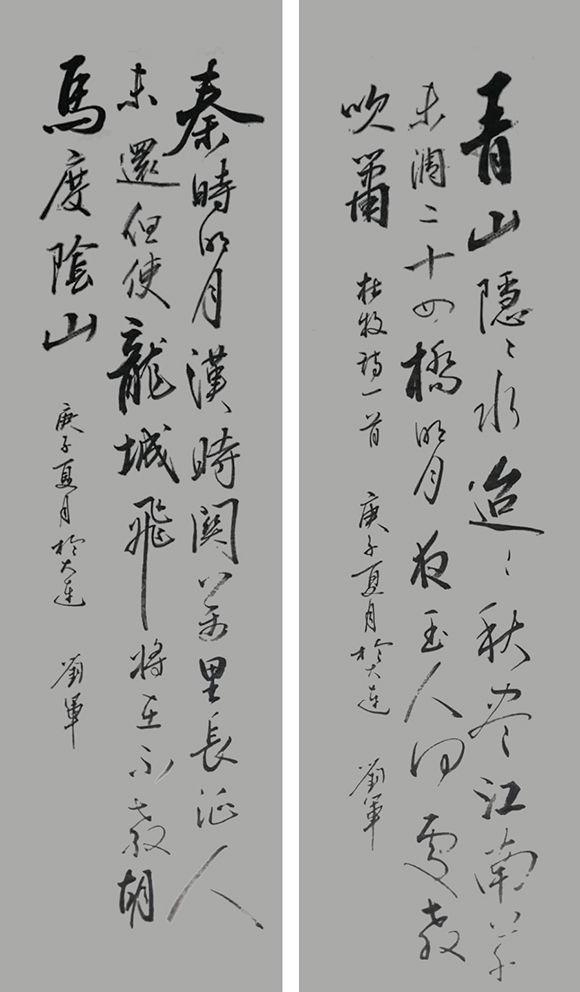 青山隱〻水迢〻秋盡江南草
未凋二十四橋明月夜玉人何處教
吹簫 杜牧詩一首 庚子夏月於大連 劉軍
秦時明月漢時關萬里長征人
未還但使龍城飛將在不教胡
馬度陰山 庚子夏月於大連 劉軍